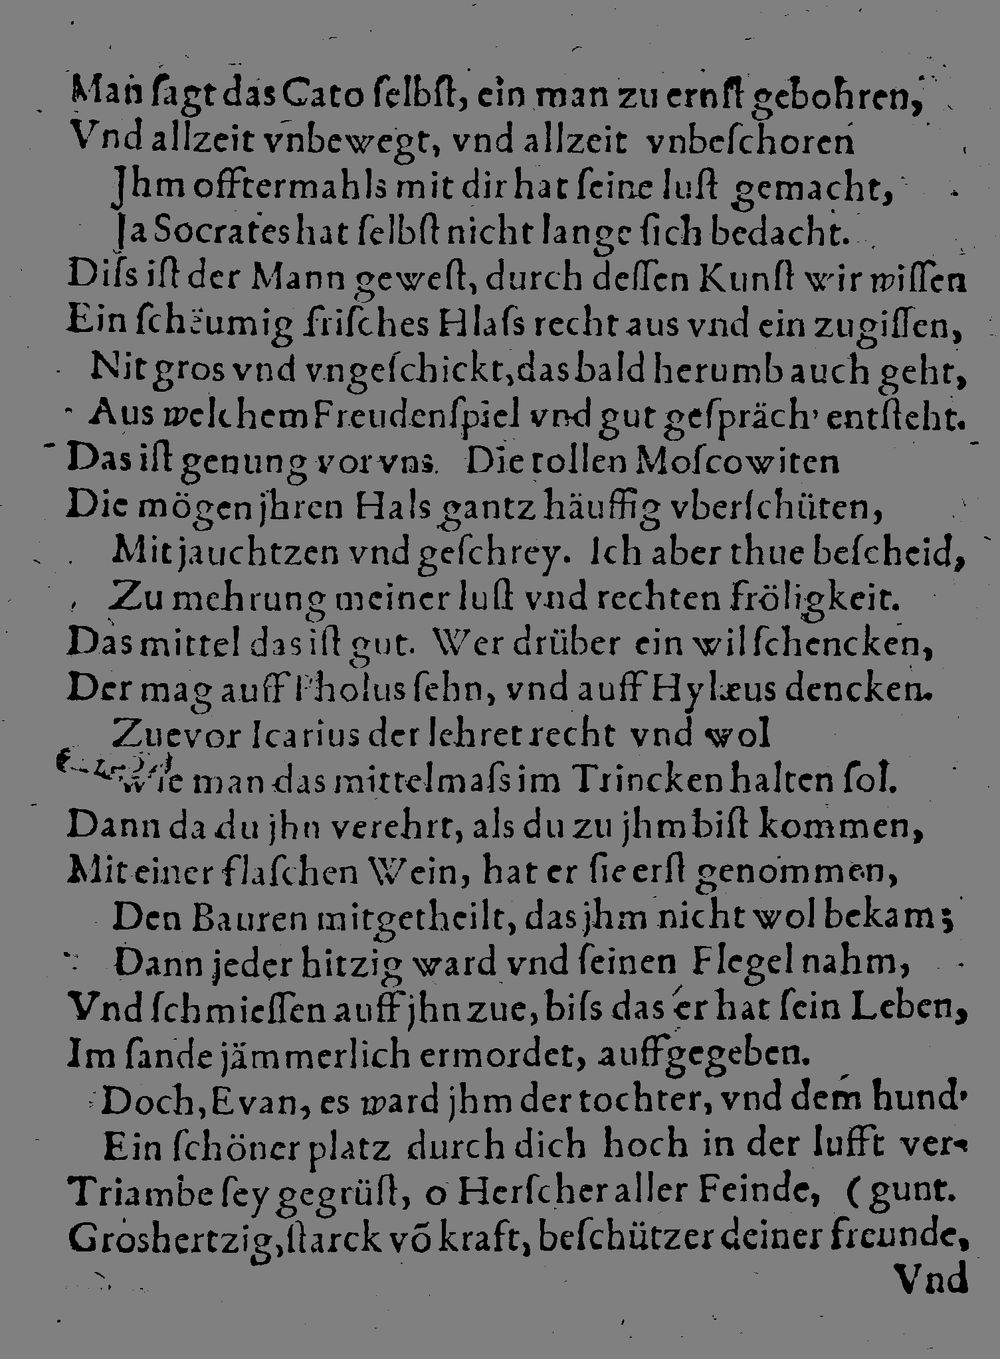 Man ſagt das Cato ſelbſt, ein man zu ernſt gebohren,
Vnd allzeit vnbewegt, vnd allzeit vnbeſchoren
Jhm offtermahls mit dir hat ſeine luſt gemacht,
Ja Socrates hat ſelbſt nicht lange ſich bedacht.
Diſs iſt der Mann geweſt, durch deſſen Kunſt wir wiſſen
Ein ſchäumig friſches Hlaſs recht aus vnd ein zugiſſen,
Nit gros vnd vngeſchickt, das bald herumb auch geht,
Aus welchem Freudenſpiel vnd gut geſpräch' entſteht.
Das iſt genung vor vns. Die tollen Moſcowiten
Die mögen jhren Hals gantz häuffig vberſchüten,
Mit jauchtzen vnd geſchrey. Ich aber thue beſcheid,
Zu mehrung meiner luſt vnd rechten fröligkeit.
Das mittel das iſt gut. Wer drüber ein wil ſchencken,
Der mag auff Pholus ſehn, vnd auff Hylæus dencken.
Zuevor Icarius der lehret recht vnd wol
Wie man das mittelmaſs im Trincken halten ſol.
Dann da du jhn verehrt, als du zu jhm biſt kommen,
Mit einer flaſchen Wein, hat er ſie erſt genommen,
Den Bauren mitgetheilt, das jhm nicht wol bekam;
Dann jeder hitzig ward vnd ſeinen Flegel nahm,
Vnd ſchmieſſen auff jhn zue, biſs das er hat ſein Leben,
Im ſande jämmerlich ermordet, auffgegeben.
Doch, Evan, es ward jhm der tochter, vnd dem hund'
Ein ſchöner platz durch dich hoch in der lufft ver-
Triambe ſey gegrüſt, o Herſcher aller Feinde, (gunt.
Groshertzig, ſtarck võ kraft, beſchützer deiner freunde,
Vnd